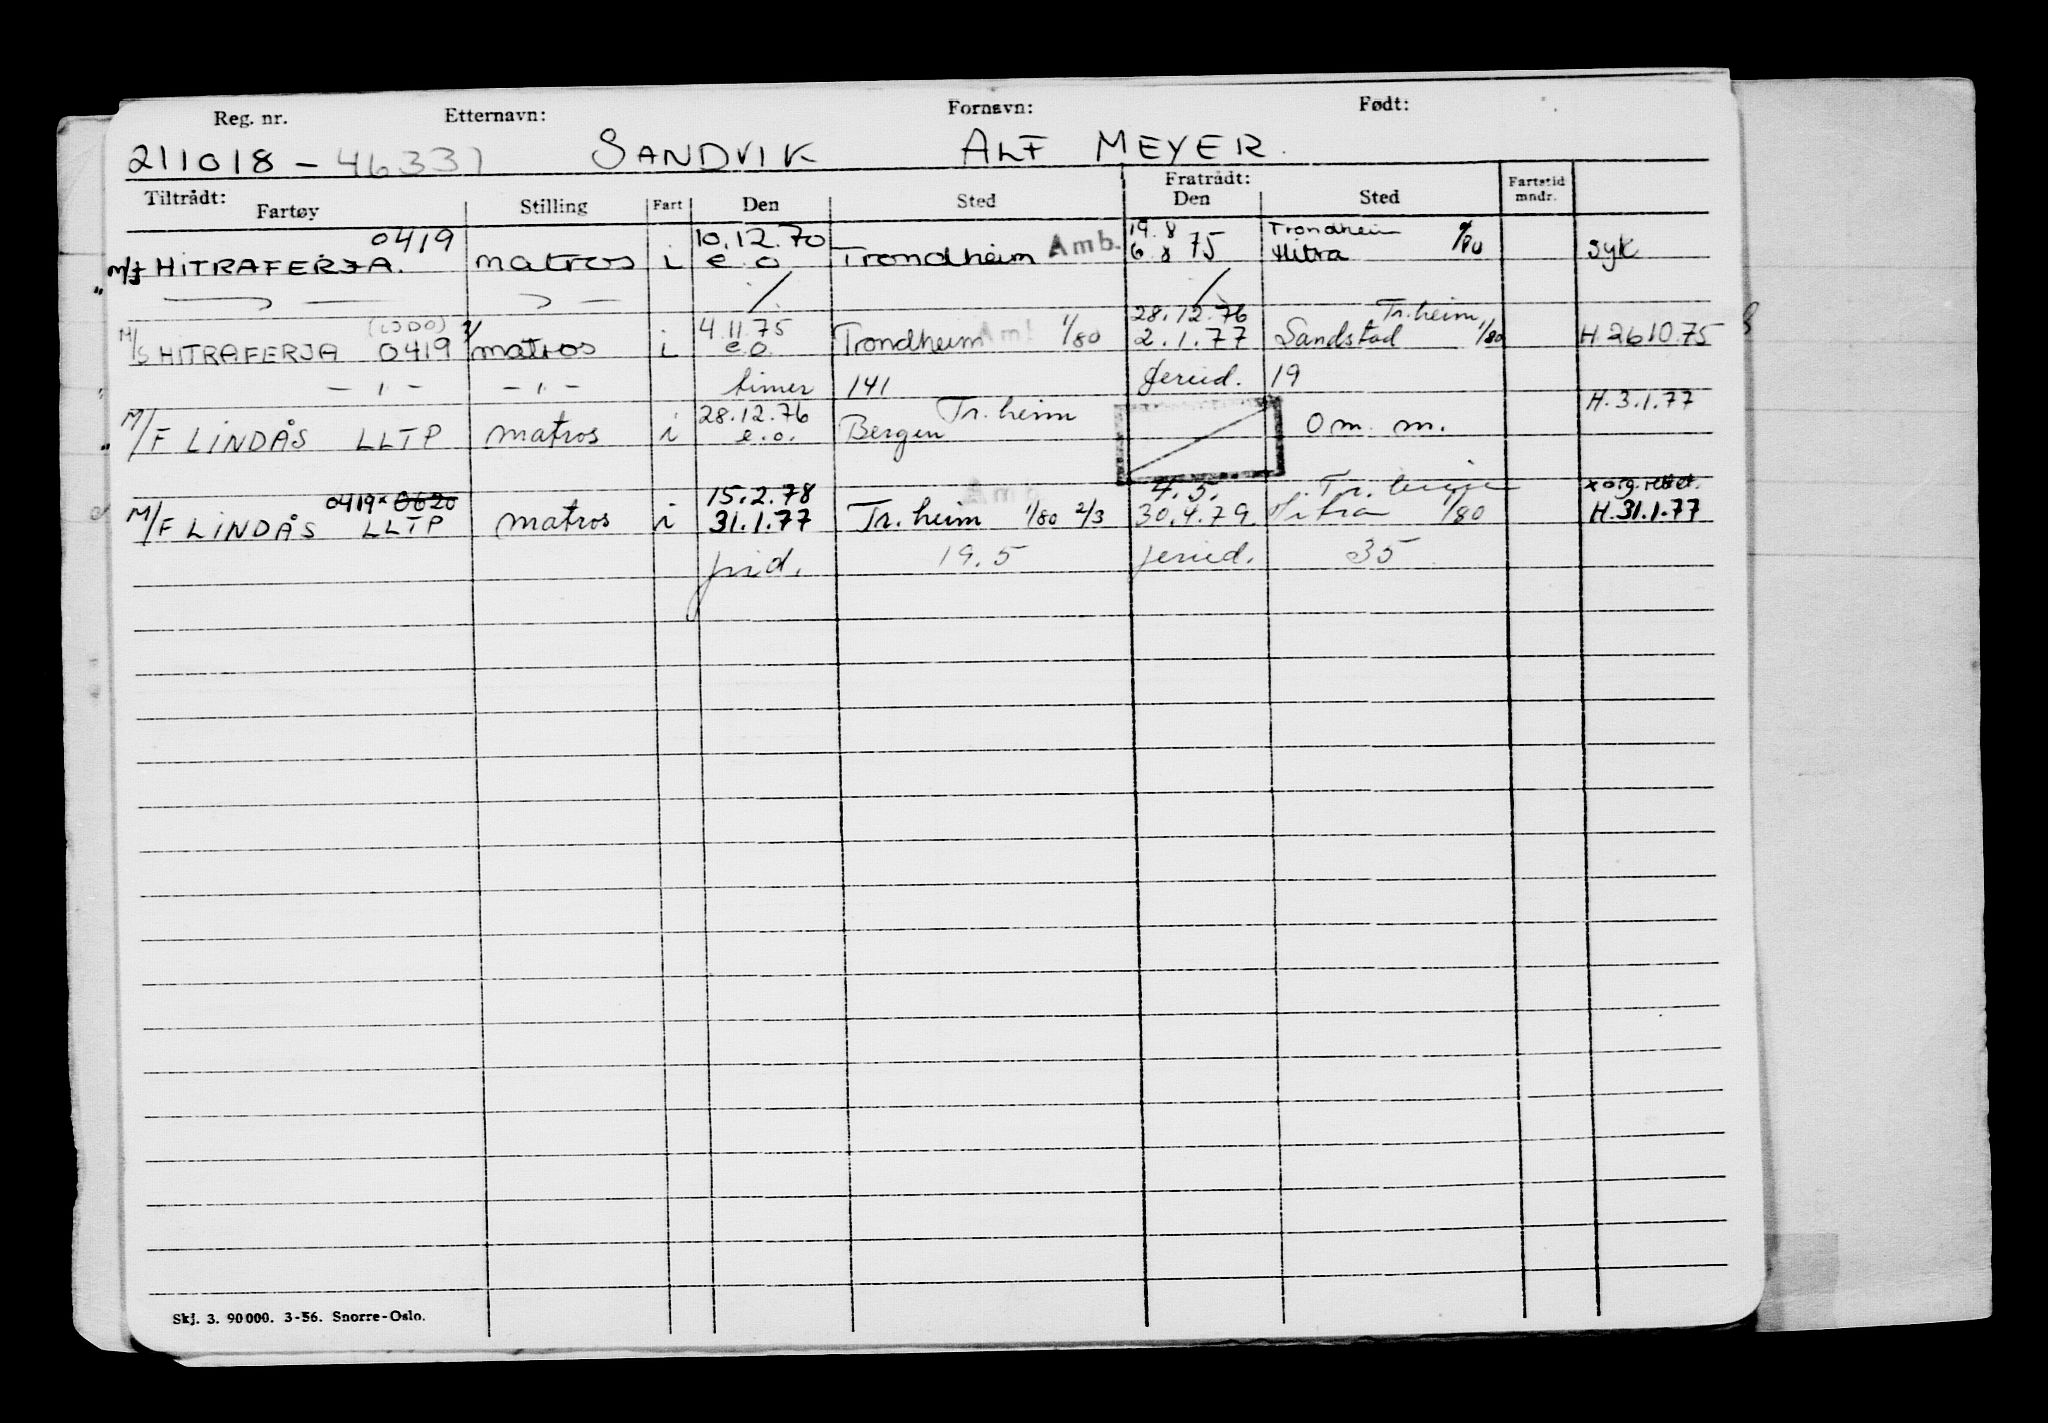 Reg. nr. Etternavn: Fornavn: Født:
211018 - 46331 SANDVIK ALF MEYER
Tiltrådt: Fratrådt:
Fartøy Stilling Fart Den Sted Den Sted Fartstid mndr.
0419 10.12.70 19.8 Trondheim
M/f HITRAFERJA. matros i e.o Trondheim Amb. 6 8 75 Hitra syk
(LJDO) 4.11.75 28.12.76 Tr.heim
M/S HITRAFERJA 0419 matros i e.o. Trondheim Amb 1/80 2.1.77 Sandstad 1/80 H.26.10.75
— " — — " — timer 141 feried. 19
28.12.76 Tr.heim H.3.1.77
M/F LINDÅS LLTP matros i e.o. Bergen Om. m.
0419 x 0620 15.2.78 Amb 4.5. Tr.heim x org. rettet.
M/F LINDÅS LLTP matros i 31.1.77 Tr.heim 1/80 2/3 30.4.79 Hitra 1/80 H.31.1.77
frid. 19.5 feried. 35
Skj. 3. 90000. 3-56. Snorre-Oslo.